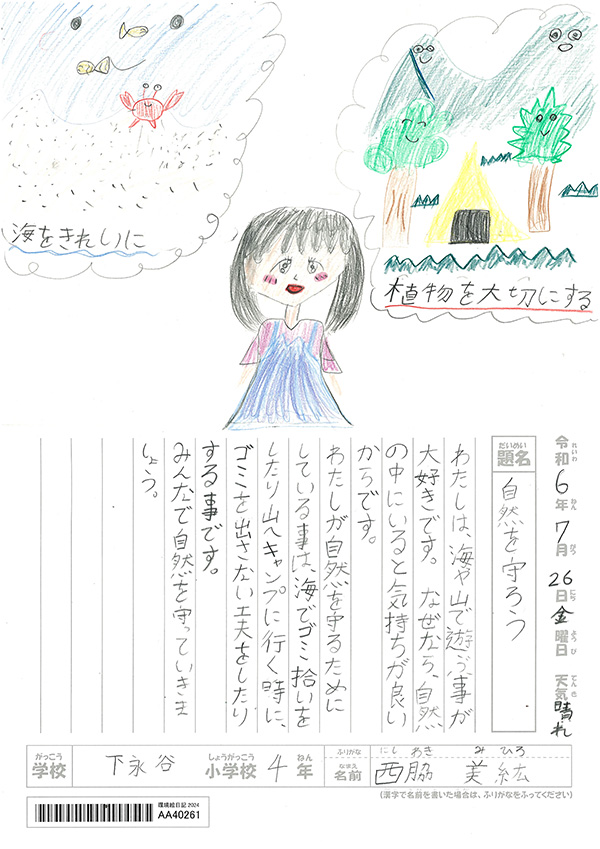 海をきれいに
植物を大切にする
令和6年7月26日金曜日 天気晴れ
れいわ ねん がつ にち ようび てんき
だいめい
題名 自然を守ろう
わたしは、海や山で遊ぶ事が
大好きです。なぜなら、自然
の中にいると気持ちが良い
からです。
わたしが自然を守るために
している事は、海でゴミ拾いを
したり山へキャンプに行く時に、
ゴミを出さない工夫をしたり
する事です。
みんなで自然を守っていきま
しょう。
がっこう しょうがっこう ねん ふりがな にし あき み ひろ
学校 下永谷 小学校 4年 なまえ 名前 西脇 美紘
(漢字で名前を書いた場合は、ふりがなをふってください)
環境絵日記 2024
AA40261